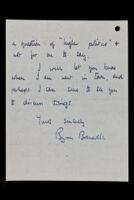 a question of "higher policies" &
not for me to say.
I will let you know
when I am next in town, and
perhaps I can come to see you
to discuss things.
Yours sincerely
Byron